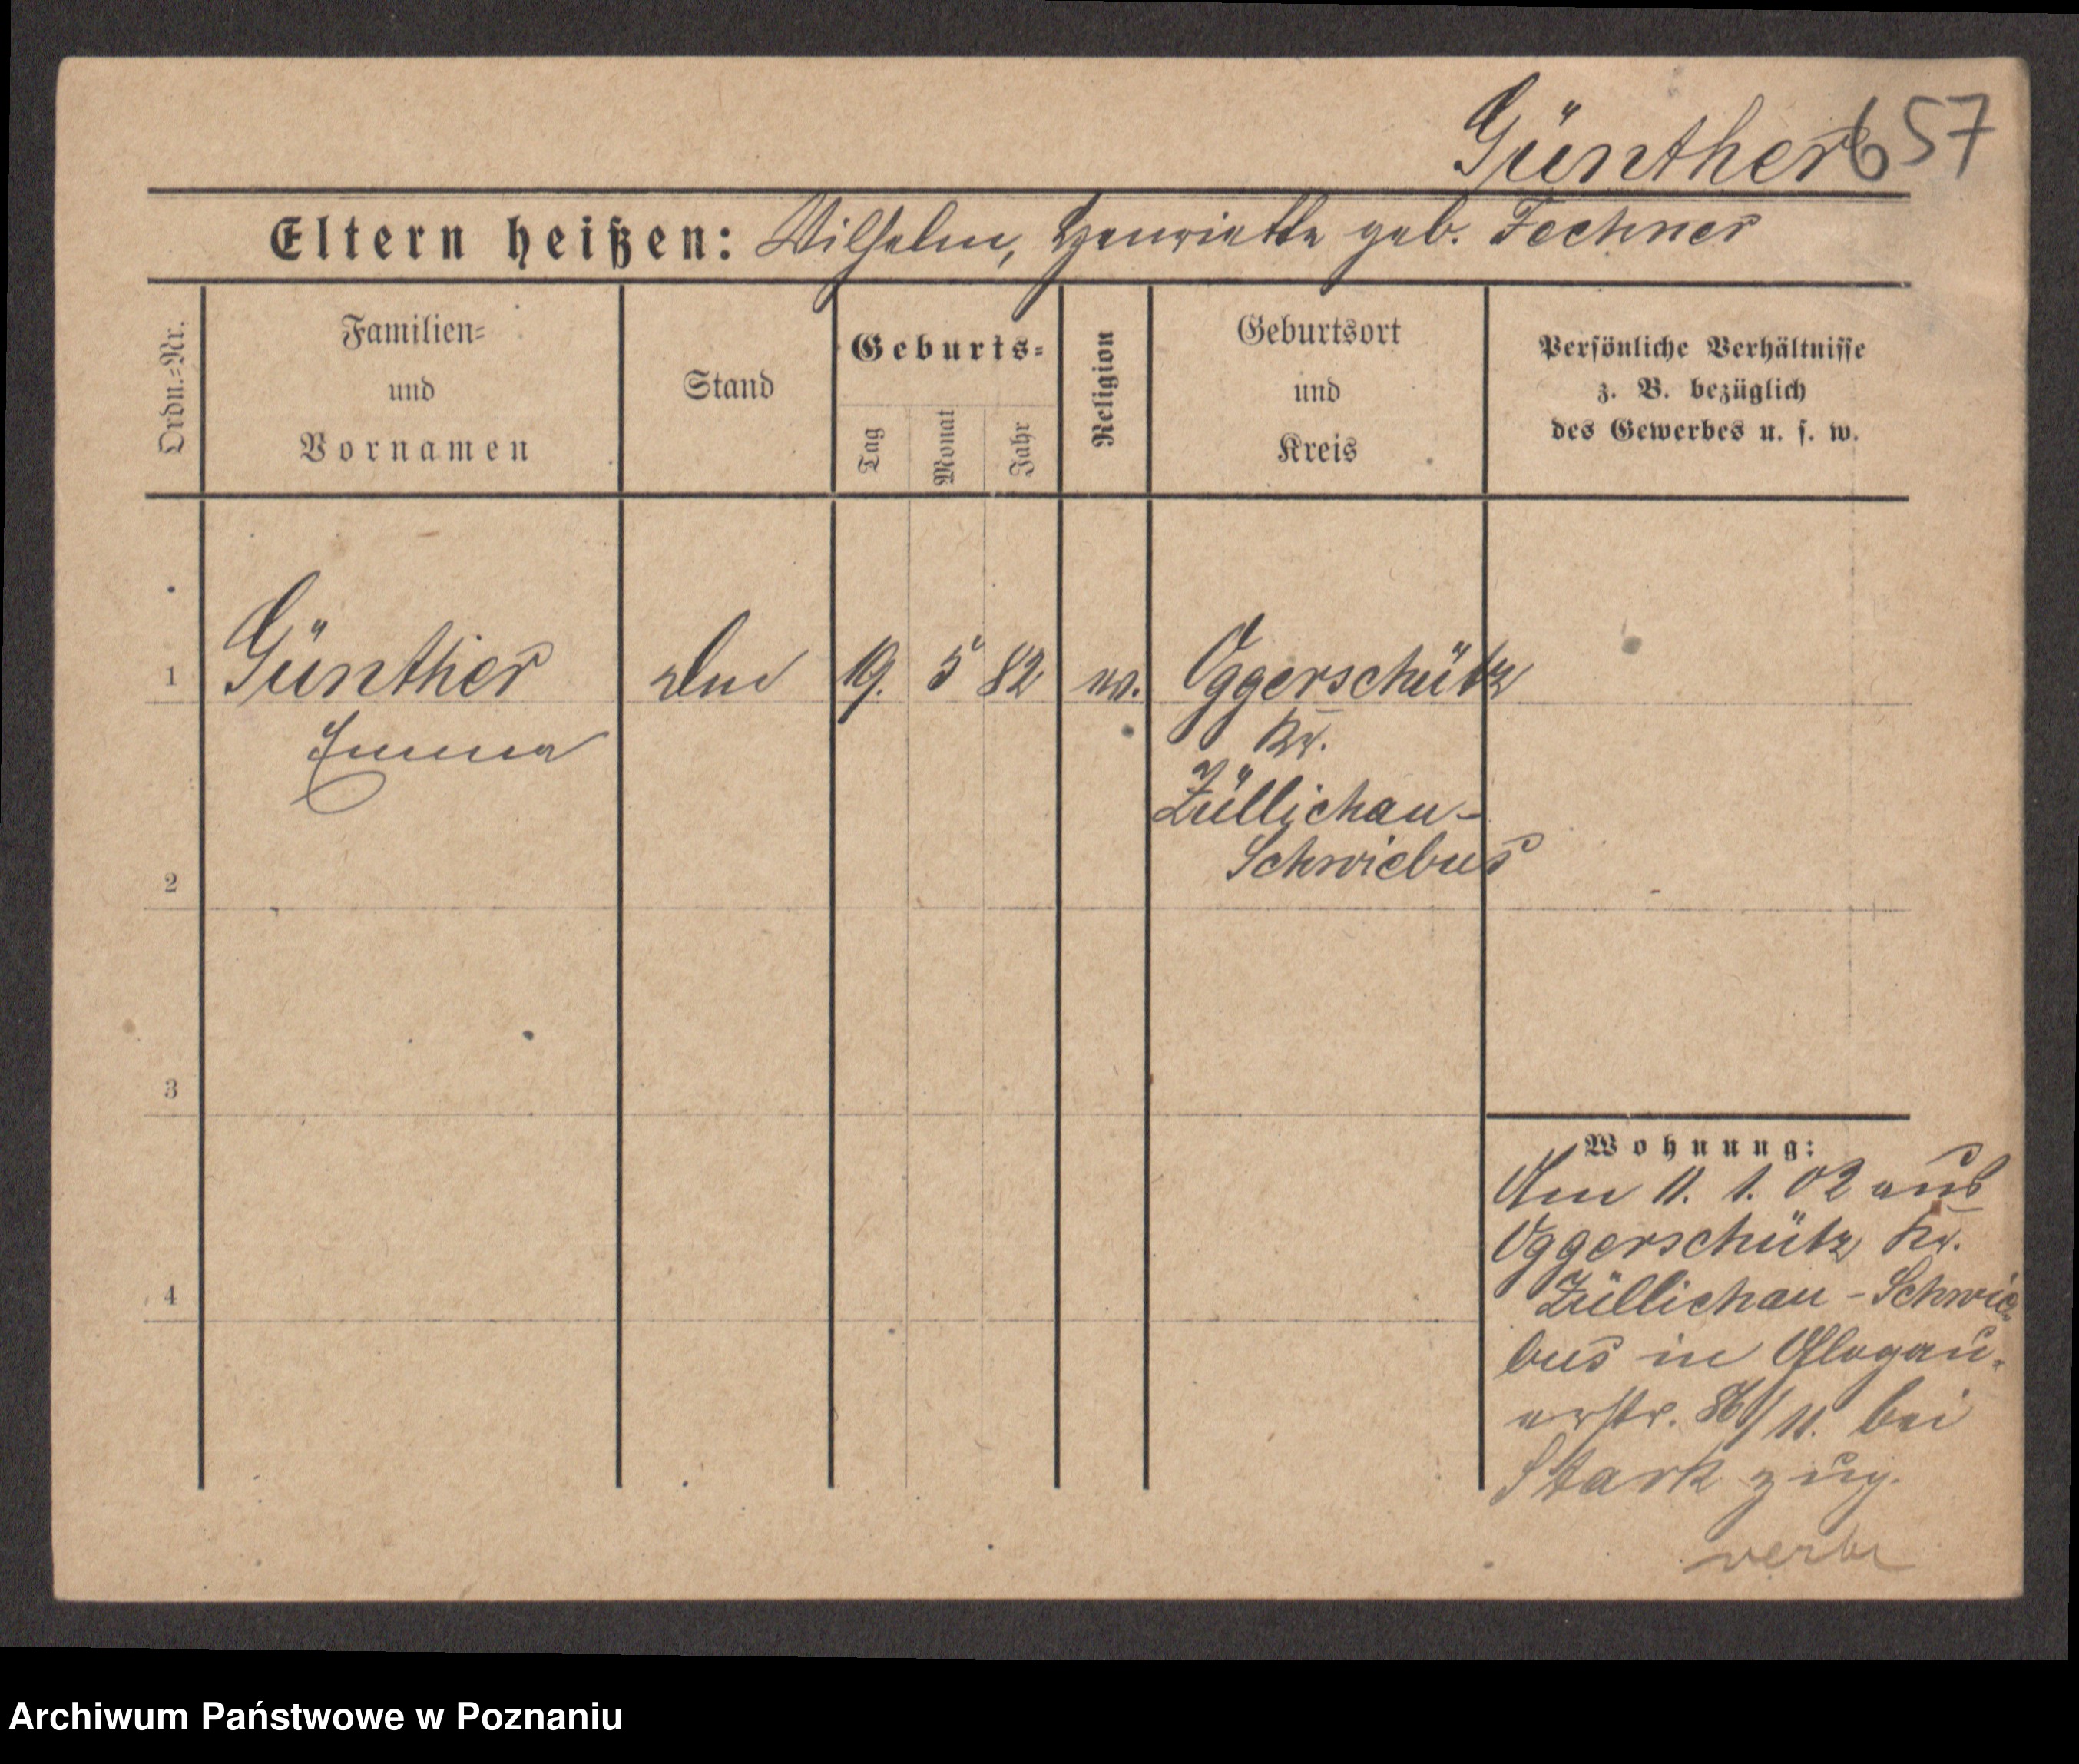 Günther
657
Eltern heißen: Wilhelm, Henriette geb. Fechner
Ordn.=Nr.
Familien=
und
Vornamen
Stand
Geburts=
Tag
Monat
Jahr
Religion
Geburtsort
und
Kreis
Persönliche Verhältnisse
z. B. bezüglich
des Gewerbes u. s. w.
1 Günther 19. 5 82 ev. Oggerschütz
Emma Kr.
Züllichau-
Schwiebus
2
3
4
Wohnung:
Am 11. 1. 02 aus
Oggerschütz Kr.
Züllichau - Schwie-
bus in Glogau-
erstr. bei
Stark zug.